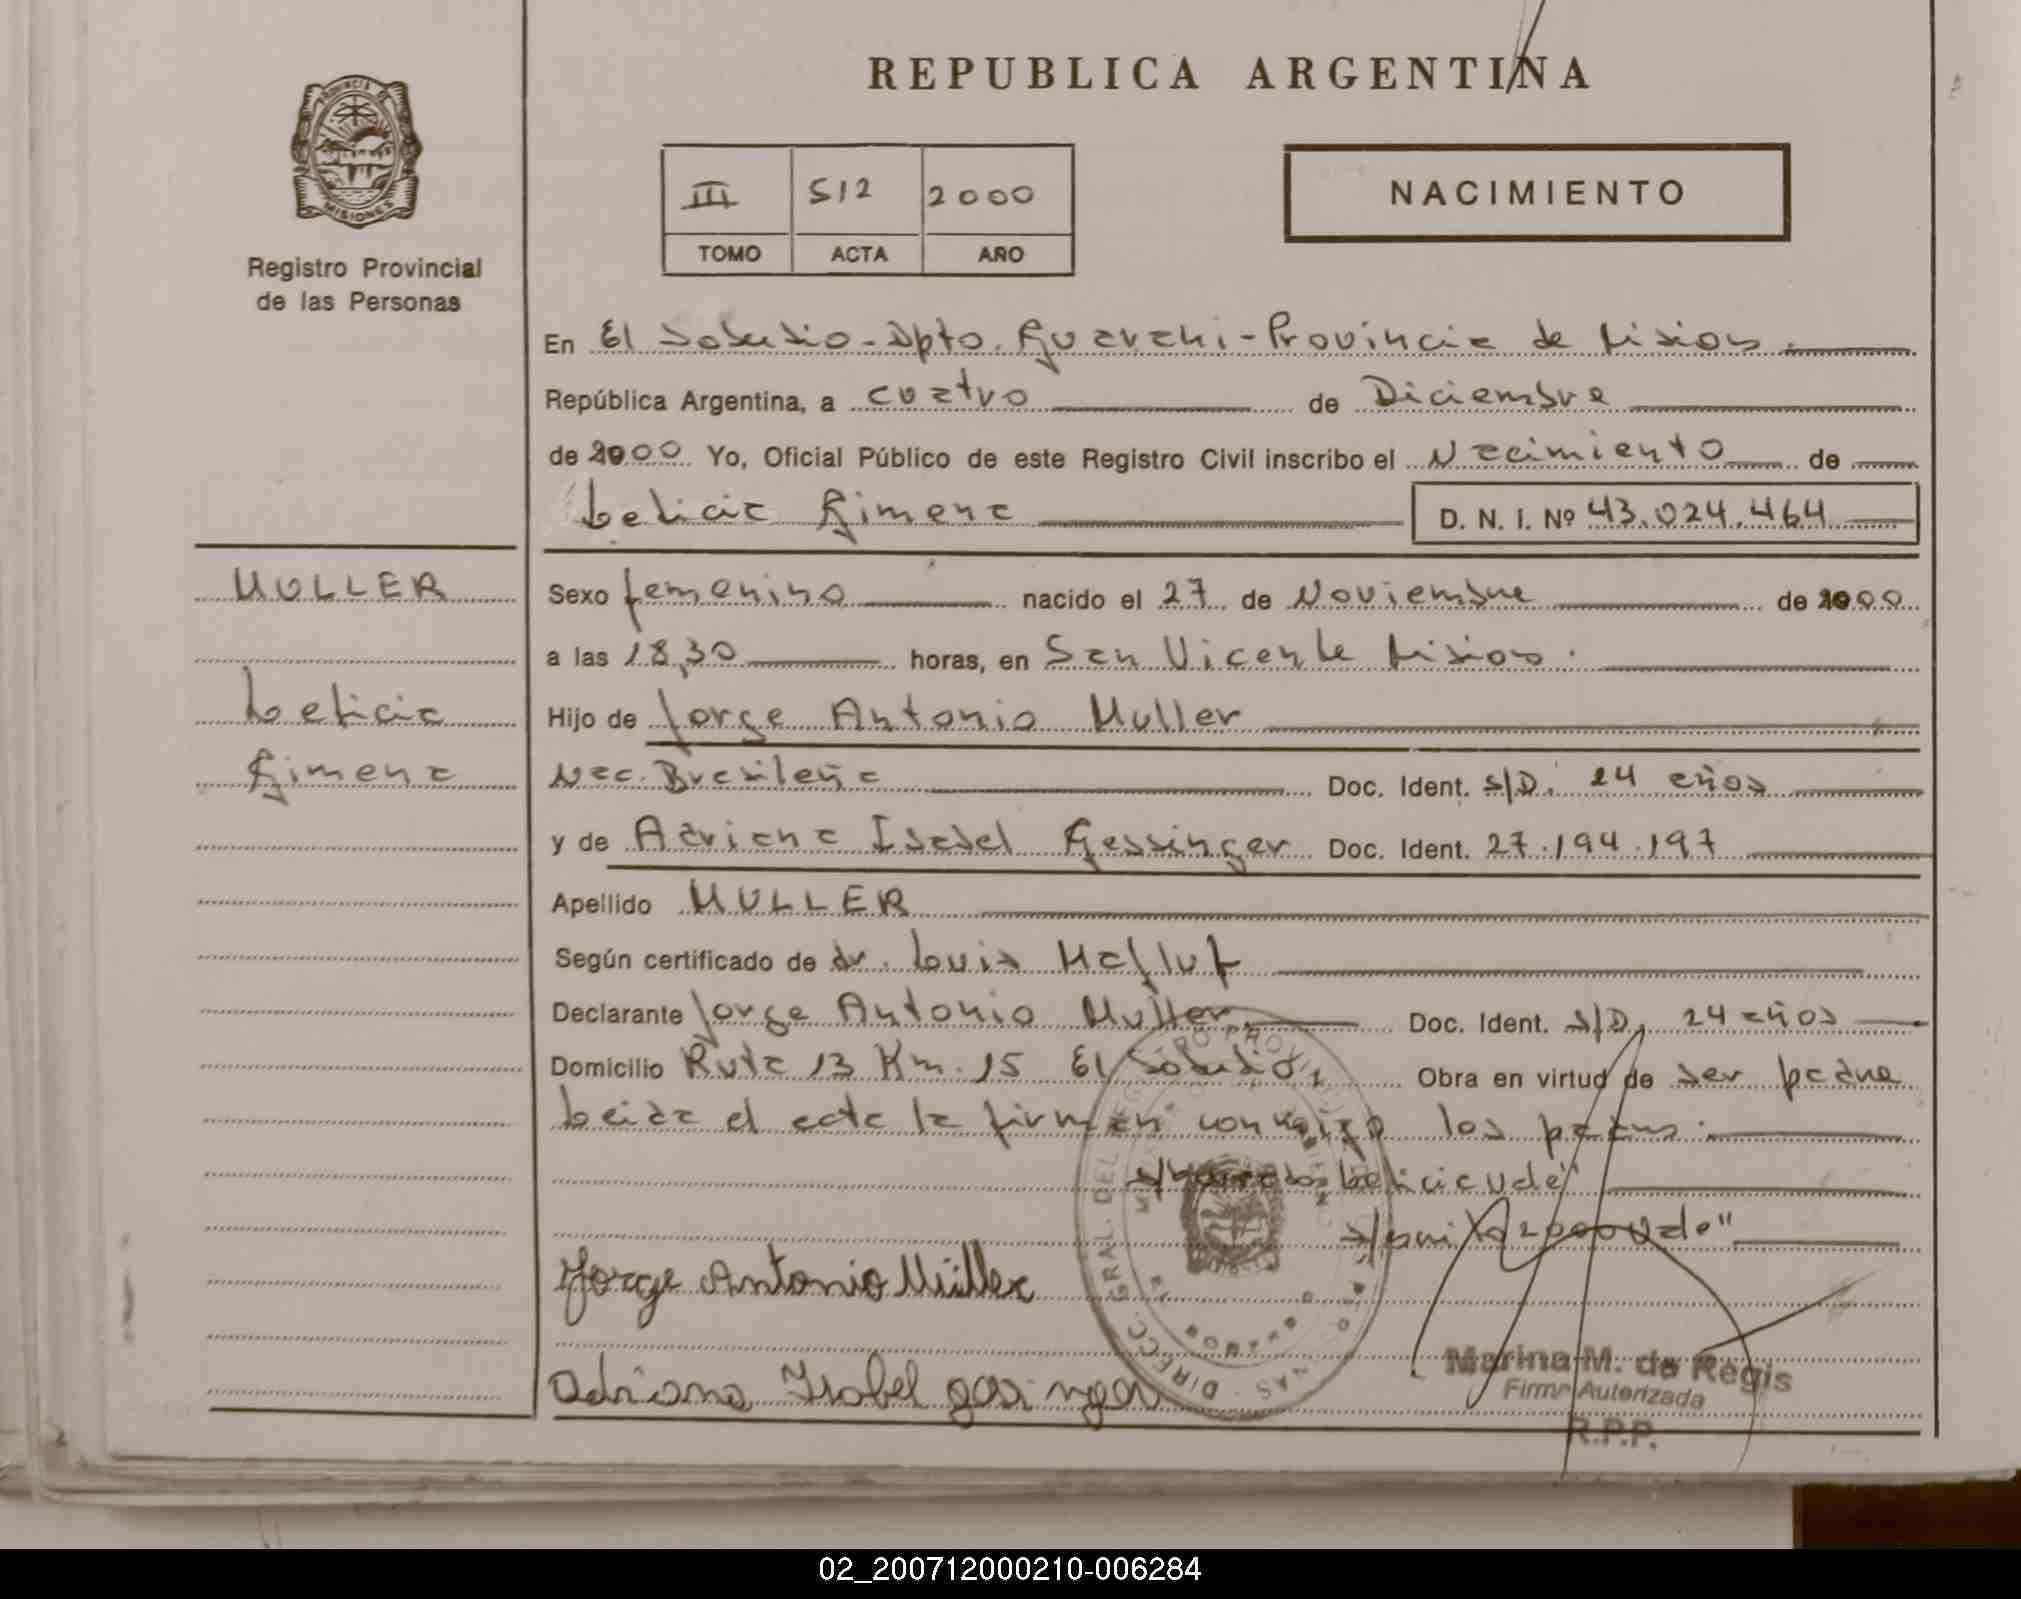 REPUBLICA ARGENTINA
PROVINCIA DE
MISIONES
Registro Provincial
de las Personas
III 512 2000
TOMO ACTA AÑO
NACIMIENTO
En El Soberbio - Dpto. Guarani - Provincia de Misiones.
República Argentina, a cuatro de Diciembre
de 2000 Yo, Oficial Público de este Registro Civil inscribo el Nacimiento de
Leticia Gimena D. N. I. Nº 43.024.464
MULLER
Leticia
Gimena
Sexo femenino nacido el 27 de Noviembre de 2000
a las 18,30 horas, en San Vicente Misiones.
Hijo de Jorge Antonio Muller
Nac. Brasileña Doc. Ident. S/D. 24 años
y de Adriana Isabel Gessinger Doc. Ident. 27.194.197
Apellido MULLER
Según certificado de dr. Luis
Declarante Jorge Antonio Muller Doc. Ident. S/D, 24 años
Domicilio Ruta 13 Km. 15 El Soberbio, Obra en virtud de ser padre
Leida el acta la firman conmigo los padres.
s/borrado: Leticia vale"
2000 Vale"
Jorge Antonio Müller
Adriana Isabel
DIRECC. GRAL. DEL
Marina M. de Regis
Firma Autorizada
R.P.P.
02_200712000210-006284